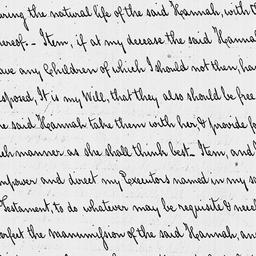 uring the natural life of the said Hannah, with
erest. - Item, if at my decease the said Hanna
ave any Children of which I should not then, ha
sposed, It is my Will, that they also should be free
he said Hannah take them with her, & provide fo
ch manner as she shall think best. Item, and
mpower and direct my Executors named in my
Testament, to do whatever may be requisite & need
erfect the manumission of the said Hannah, an